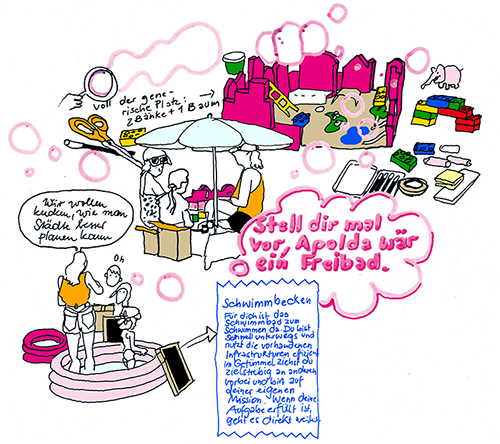 voll der gene-
rische Platz:
2 Bänke + 1 Baum
Wir wollen
kucken, wie man
Städte besser
planen kann
Oh
Stell dir mal
vor, Apolda wär
ein Freibad.
Schwimmbecken
Für dich ist das
Schwimmbad zum
Schwimmen da. Du bist
schnell unterwegs und
nutzt die vorhandenen
Infrastrukturen effizient.
Im Getümmel ziehst du
zielstrebig an anderen
vorbei und bist auf
deiner eigenen
Mission. Wenn deine
Aufgabe erfüllt ist,
geht es direkt weiter.